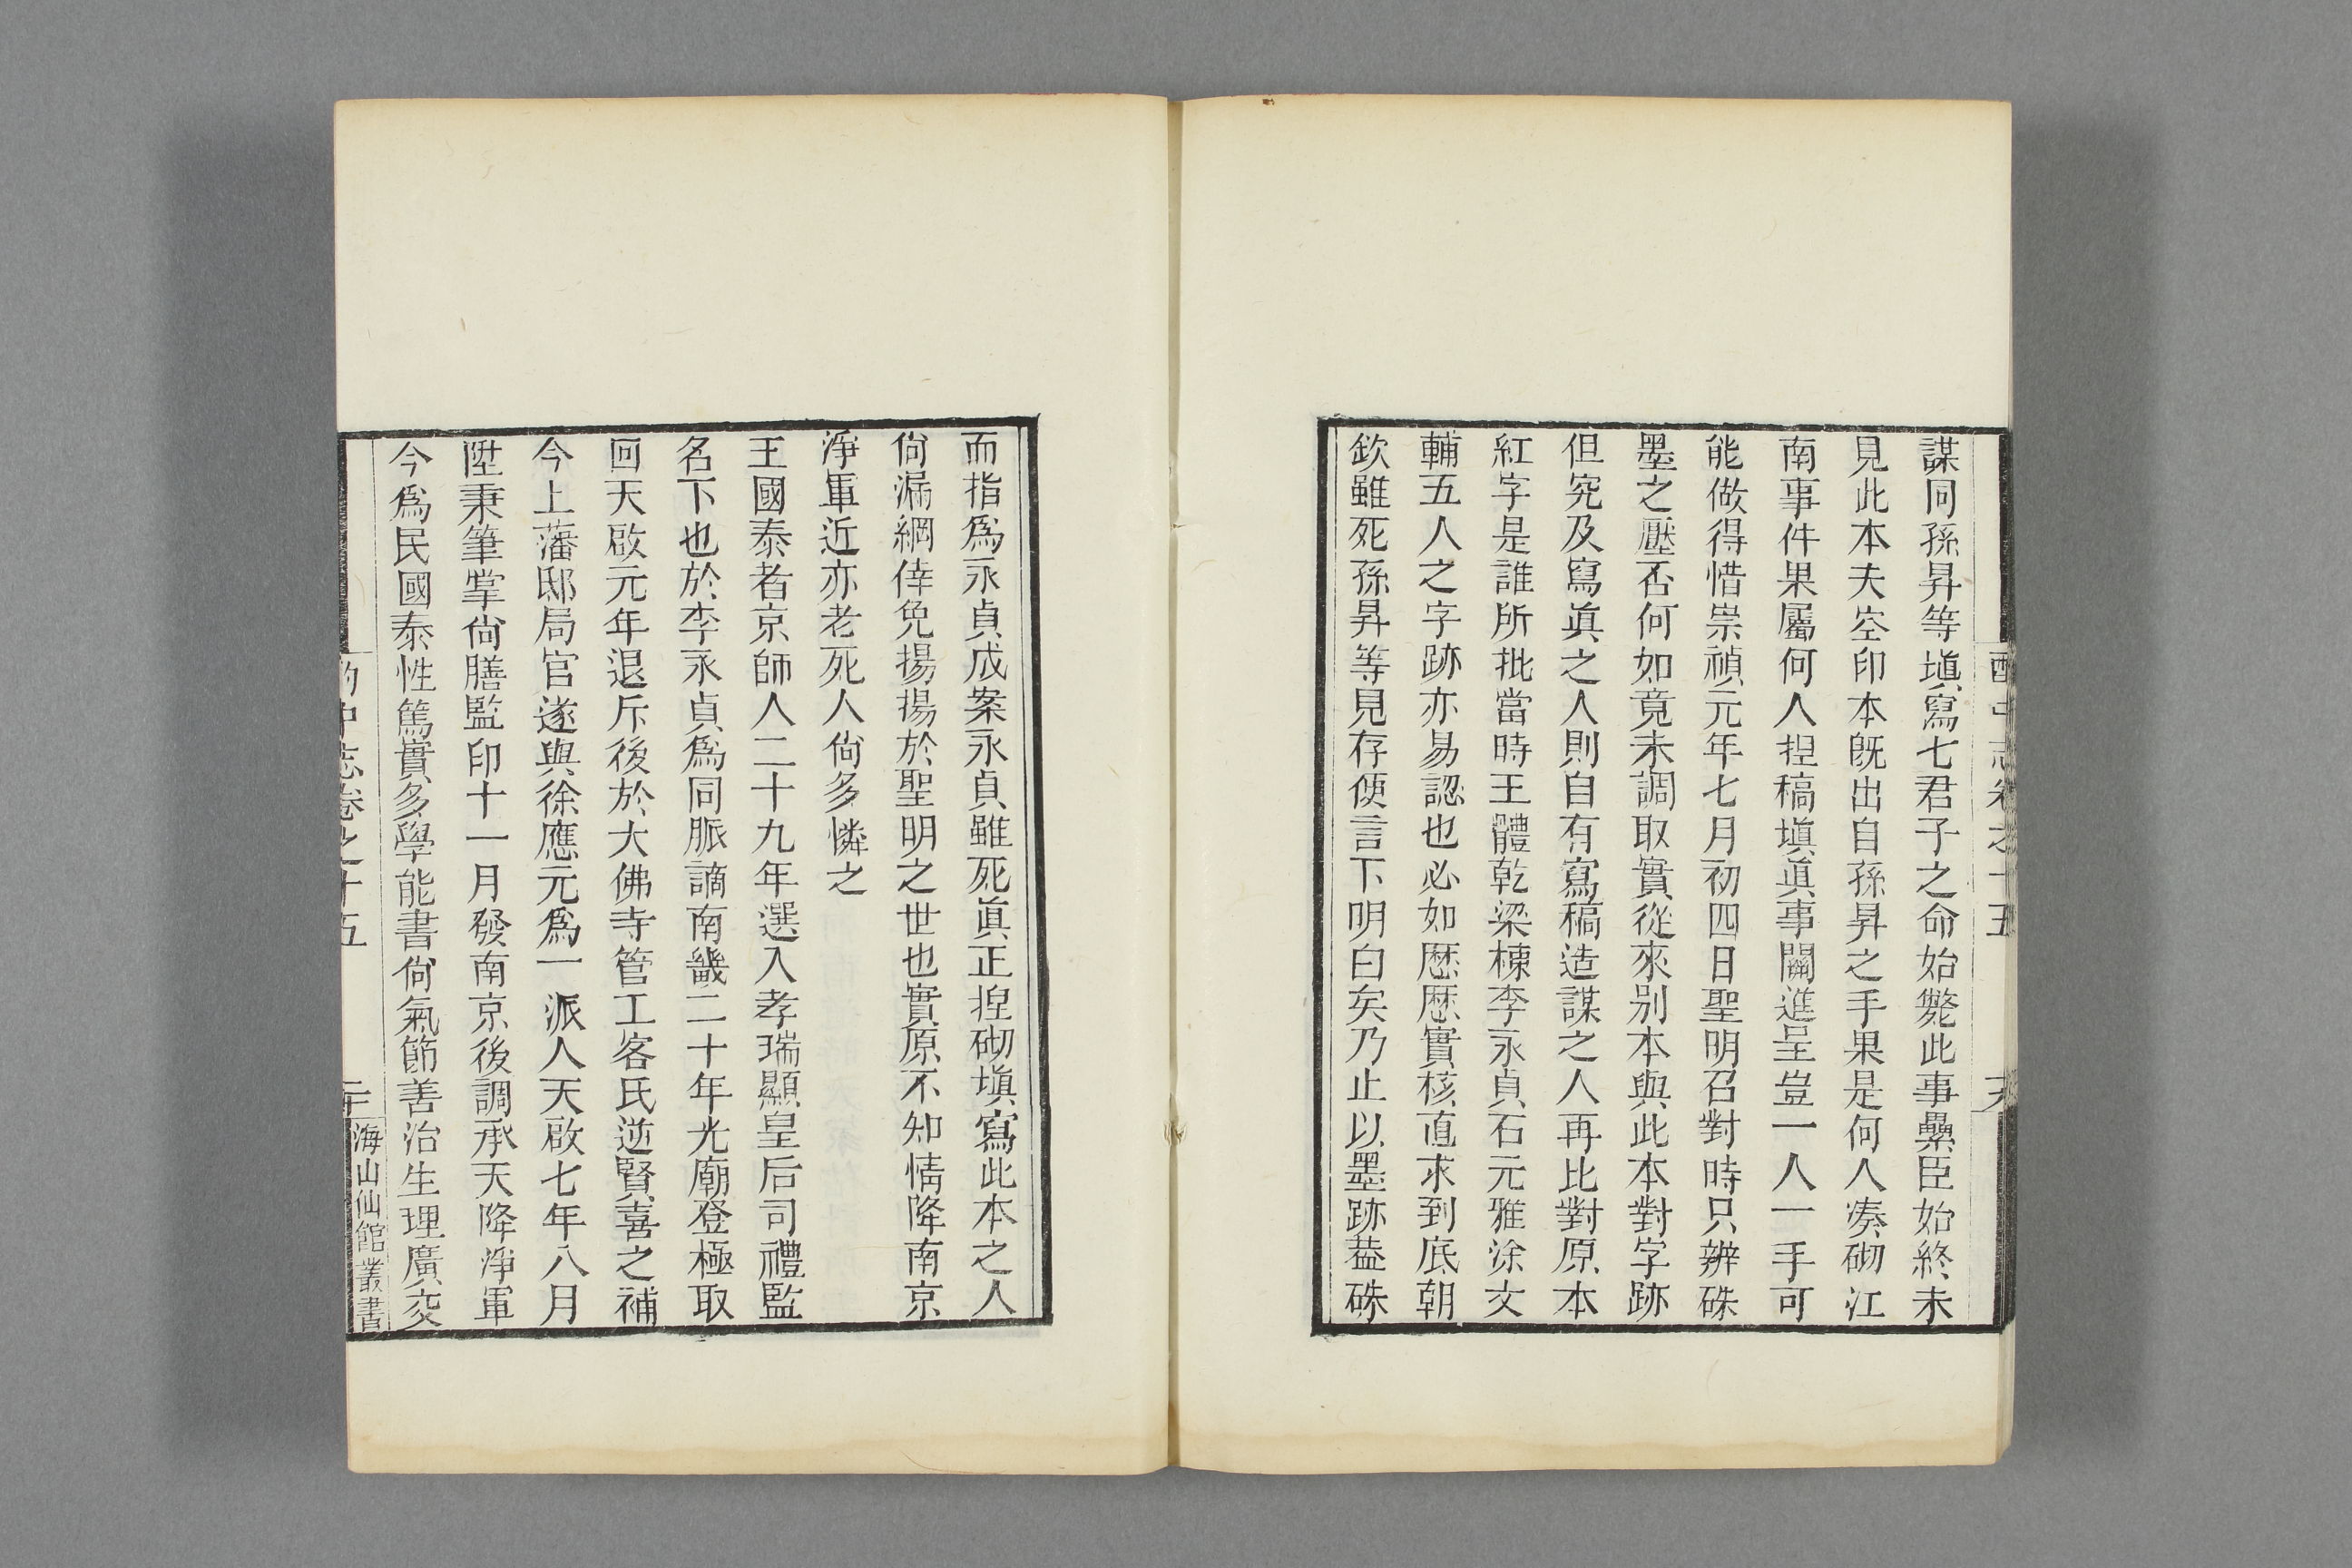 謀同孫昇等塡寫七君子之命始斃此事纍臣始終未
見此本夫空印本旣出自孫昇之手果是何人湊砌江
南事件果屬何人担稿塡眞事關進呈豈一人一手可
能做得惜崇禎元年七月初四日聖明召對時只辨硃
墨之壓否何如竟未調取實從來別本與此本對字跡
但究及寫眞之人則自有寫稿造謀之人再比對原本
紅字是誰所批當時王體乾梁棟李永貞石元雅涂文
輔五人之字跡亦易認也必如歷歷實核直求到底朝
欽雖死孫昇等見存便言下明白矣乃止以墨跡葢硃
而指爲永貞成案永貞雖死眞正揑砌塡寫此本之人
尙漏綱倖免揚揚於聖明之世也實原不知情降南京
淨軍近亦老死人尙多憐之
王國泰者京師人二十九年選入孝瑞顯皇后司禮監
名下也於李永貞爲同脈謫南畿二十年光廟登極取
回天啟元年退斥後於大佛寺管工客氏逆賢喜之補
今上藩邸局官遂與徐應元爲一派人天啟七年八月
陞秉筆掌尙膳監印十一月發南京後調承天降淨軍
今爲民國泰性篤實多學能書尙氣節善治生理廣交
酌中志卷之十五
二十
海山仙館叢書